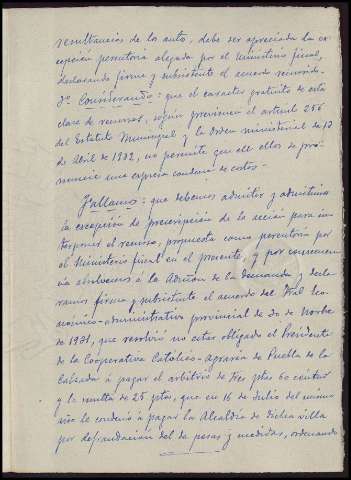 resultancias de los autos, debe ser apreciada la ex-
cepción perentoria alegada por el Ministerio fiscal,
declarando firme y subsistente el acuerdo recurrido.
3º Considerando: que el carácter gratuito de esta
clase de recursos, según previenen el artículo 256
del Estatuto Municipal y la Orden ministerial de 12
de Abril de 1932, no permite que en ellos se pro-
nuncie una expresa condena de costas.
Fallamos: que debemos admitir y admitimos
la excepción de prescripción de la acción para in-
terponer el recurso, propuesta como perentoria por
el Ministerio fiscal en el presente, y por consecuen-
cia absolvemos á la Admón de la demanda y decla-
ramos firme y subsistente el acuerdo del Tral Eco-
nómico-administrativo provincial de 30 de Novbre
de 1931, que resolvió no estar obligado el Presidente
de la Cooperativa Católico-Agraria de Puebla de la
Calzada á pagar el arbitrio de tres ptas 60 céntos
y la multa de 25 ptas, que en 16 de Julio del mismo
año le condenó á pagar la Alcaldía de dicha villa
por defraudación del de pesas y medidas, ordenando